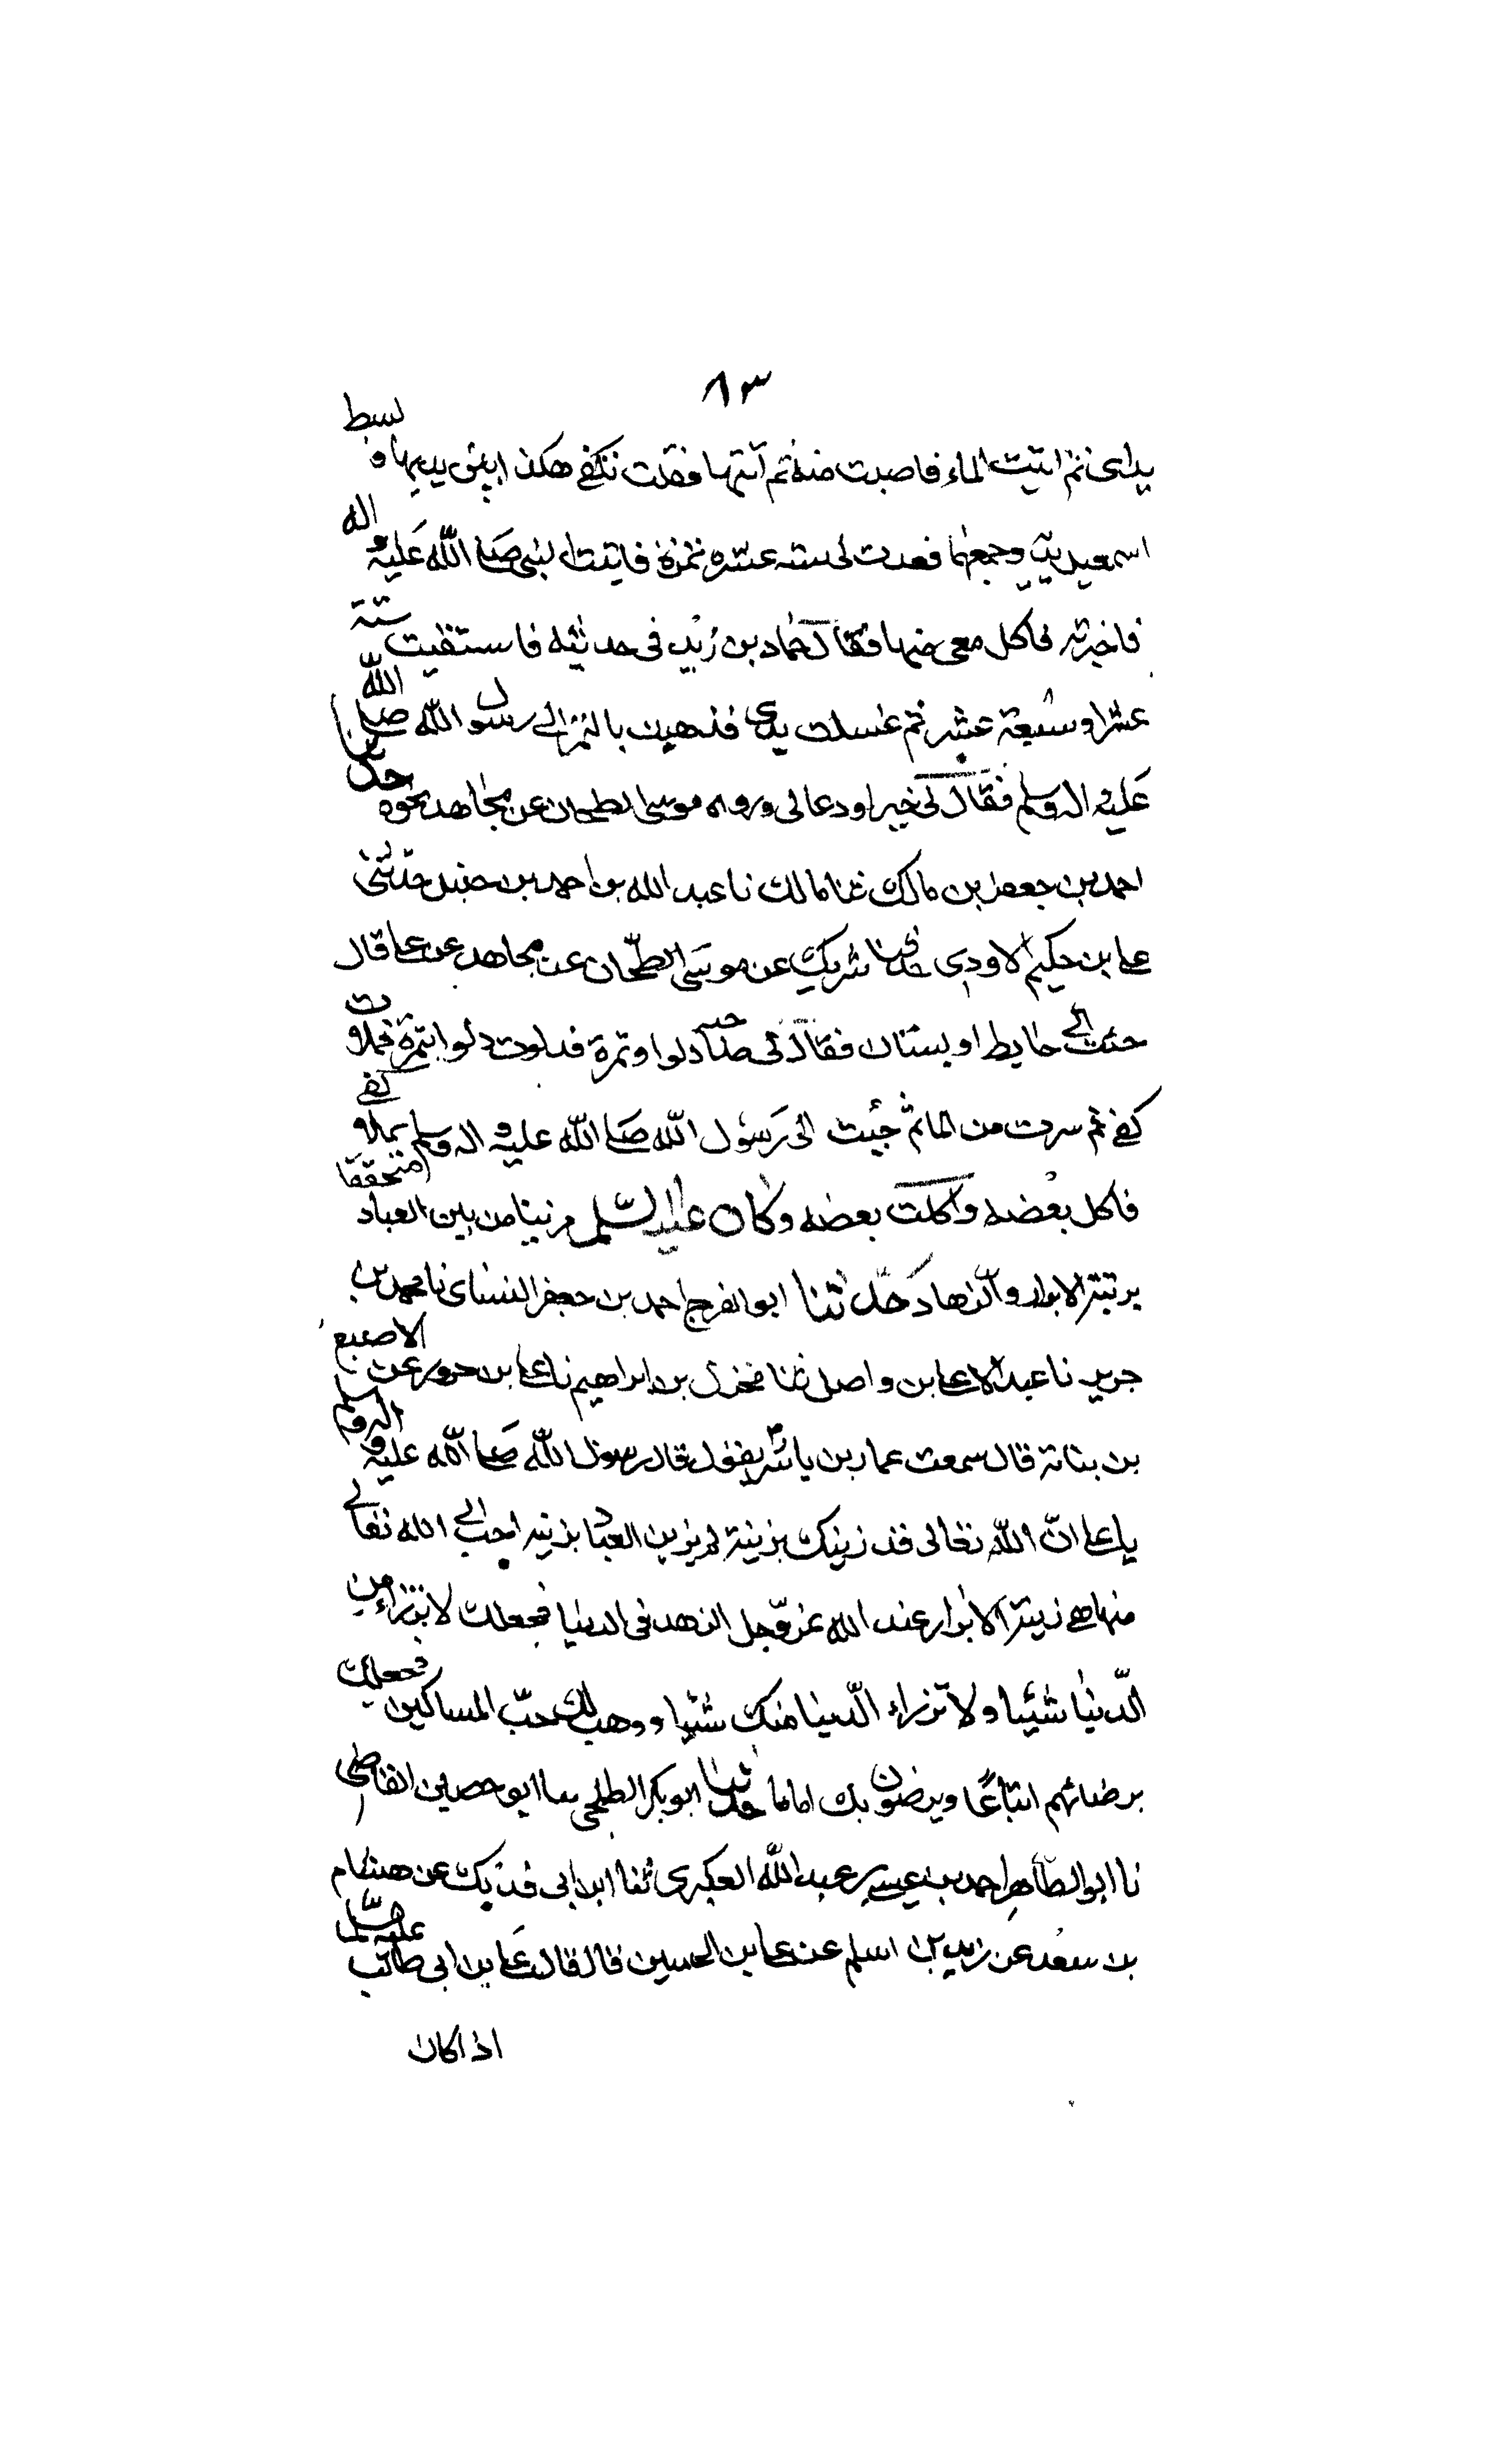 ٨٣
يداى ثم اتيت الماء فاصبت منه ثم آتيتها فقلت بكفي هكذا بين يديها وبسط
اسمعيل يديه وجمعهما فعدت لى ستة عشره تمرة فاتيت النبى صلى الله عليه واله
فاخبرته فاكل معى منها فقال حماد بن زيد فى حديثه فاستقيت ستة
عشرا وسبعة عشر ثم غسلت يدى فذهبت بالتمر الى رسول الله صلى الله
عليه واله وسلم فقال لى خيرا ودعا لى ورواه موسى الطحان عن مجاهد نحوه حدثنا
احمد بن جعفر بن مالك ثنا مالك نا عبد الله بن احمد بن حنبل حدثنى
على بن حكيم الاودى حدثنا شريك عن موسى الطحان عن مجاهد عن على قال
جئت الى حايط او بستان فقال لى صاحبه دلوا وتمرة فدلوت دلوا بتمرة فملات
كفى ثم سرت من الماء ثم جئت الى رسول الله صلى الله عليه واله وسلم بملاء كفى
فاكل بعضه واكلت بعضه وكان عليه السلم مزينا من بين العباد متحققا
بزينة الابرار والزهاد حدثنا ابو الفرج احمد بن جعفر النسائ نا محمد بن
جرير نا عبد الاعلى بن واصل ثنا مخول بن ابراهيم نا على بن حزور عن الاصبغ
بن بناتة قال سمعت عمار بن ياسر يقول قال رسول الله صلى الله عليه واله وسلم
يا على ان الله تعالى قد زينك بزينة لم يزين العباد بزينه احب الى الله تعالى
منها هي زينة الابرار عند الله عز وجل الزهد فى الدنيا فجعلك لا تزراء من
الدنيا شئيا ولا تزراء الدنيا منك شئيا ووهب لك حب المساكين فجعلك
برضائهم اتباعا ويرضون بك اماما حدثنا ابو بكر الطلحى ثنا ابو حصين القاضى
نا ابو الطاهر احمد بن عيسى بن عبد الله العكبرى ثنا ابن ابى فديك عن هشام
بن سعد عن زيد بن اسلم عن على بن الحسين قال قال على بن ابى طالب عليه السلم
اذا كان